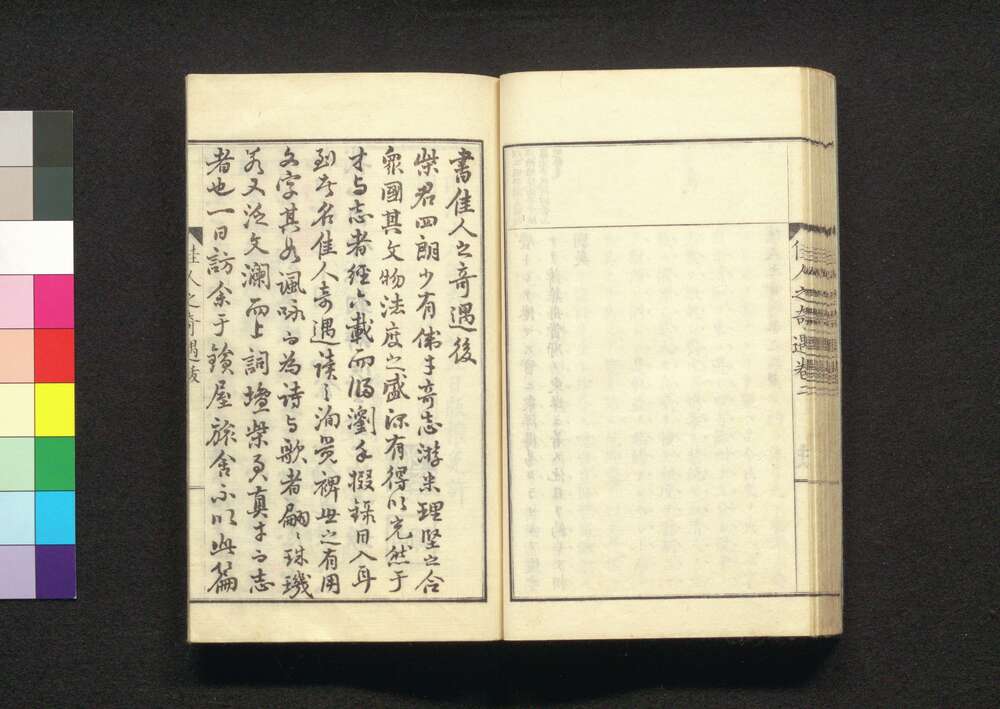 佳人之奇遇卷二
書佳人之奇遇後
柴君四朗少有偉才奇志游米理堅之合
衆國其文物法度之盛深有得以充然于
才与志者經六載而歸瀏手掇錄日入耳
到者名佳人奇遇讀之洵覺裨世之有用
文字其如諷咏而為詩与歌者翩〻珠璣
若又泛文瀾而上詞壇柴君真才而志
者也一日訪余于鑌屋旅舍示以此篇
佳人之奇遇跋